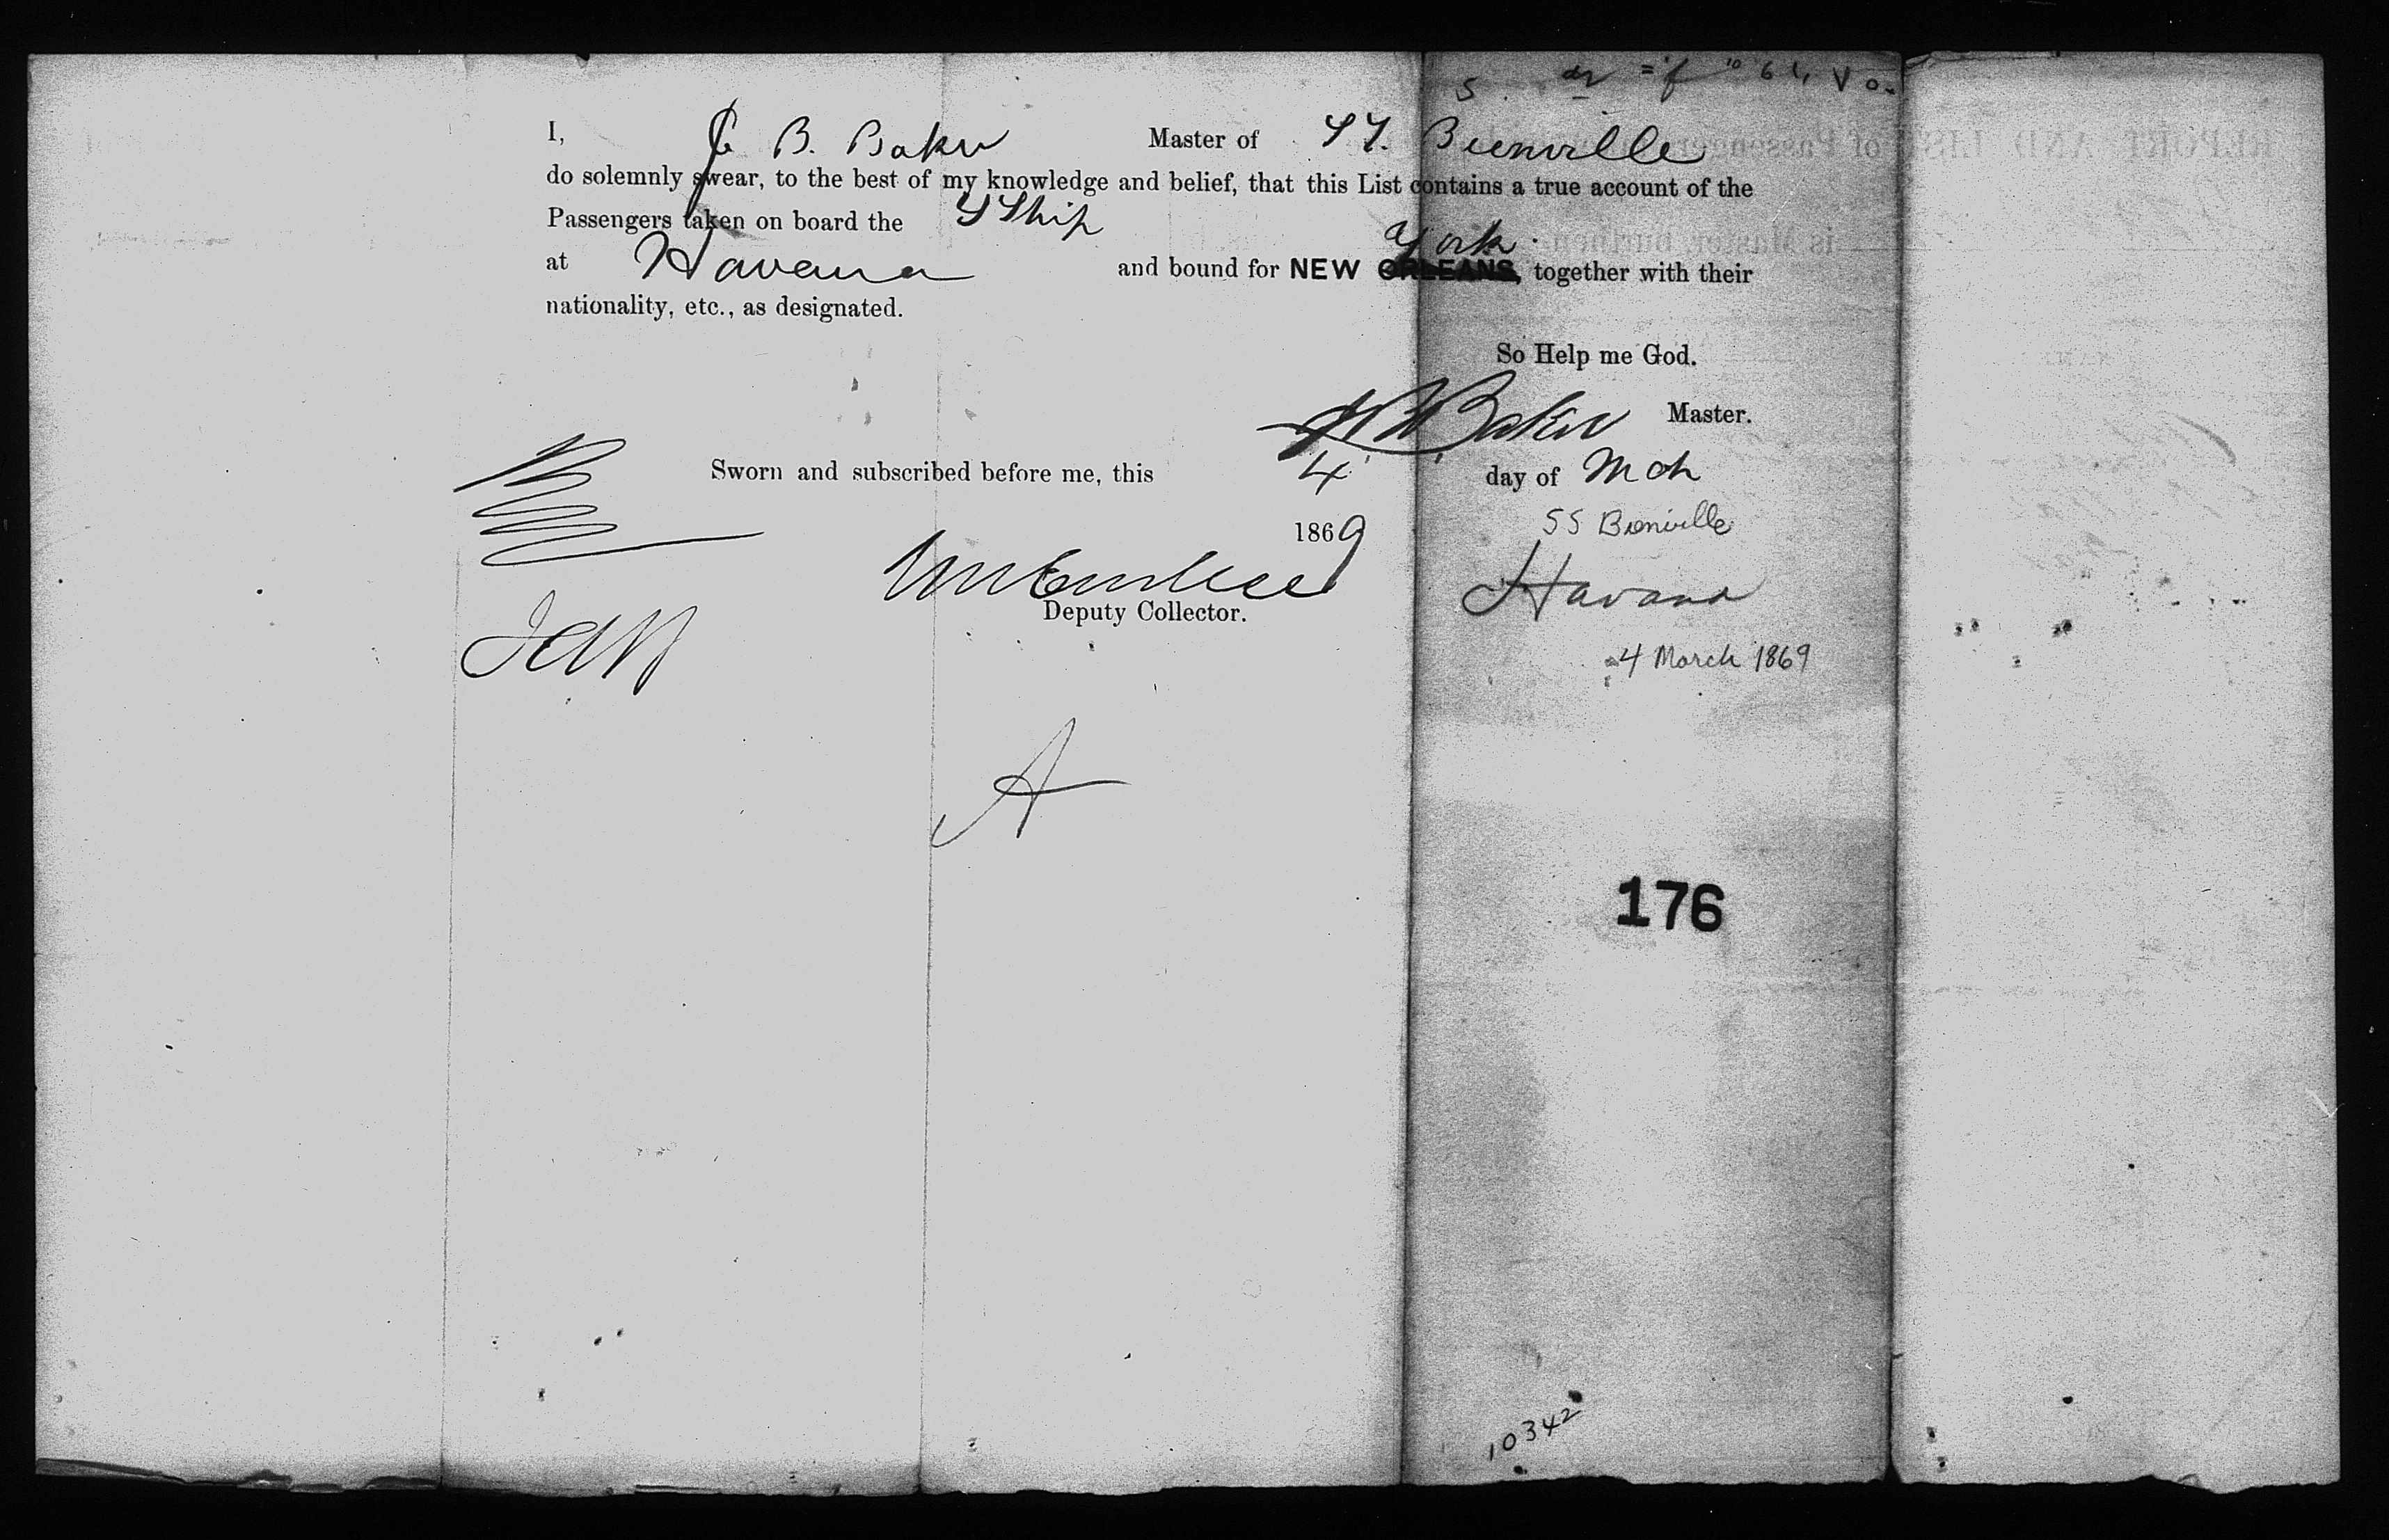 I, J B. Baker Master of SS. Bienville
do solemnly swear, to the best of my knowledge and belief, that this List contains a true account of the
Passengers taken on board the SShip
York
at Havana and bound for NEW ORLEANS, together with their
nationality, etc., as designated.
So Help me God.
Baker Master.
Sworn and subscribed before me, this 4 day of Mch
1869
SS Bienville
Deputy Collector.
Havana
4 March 1869
A
176
10342